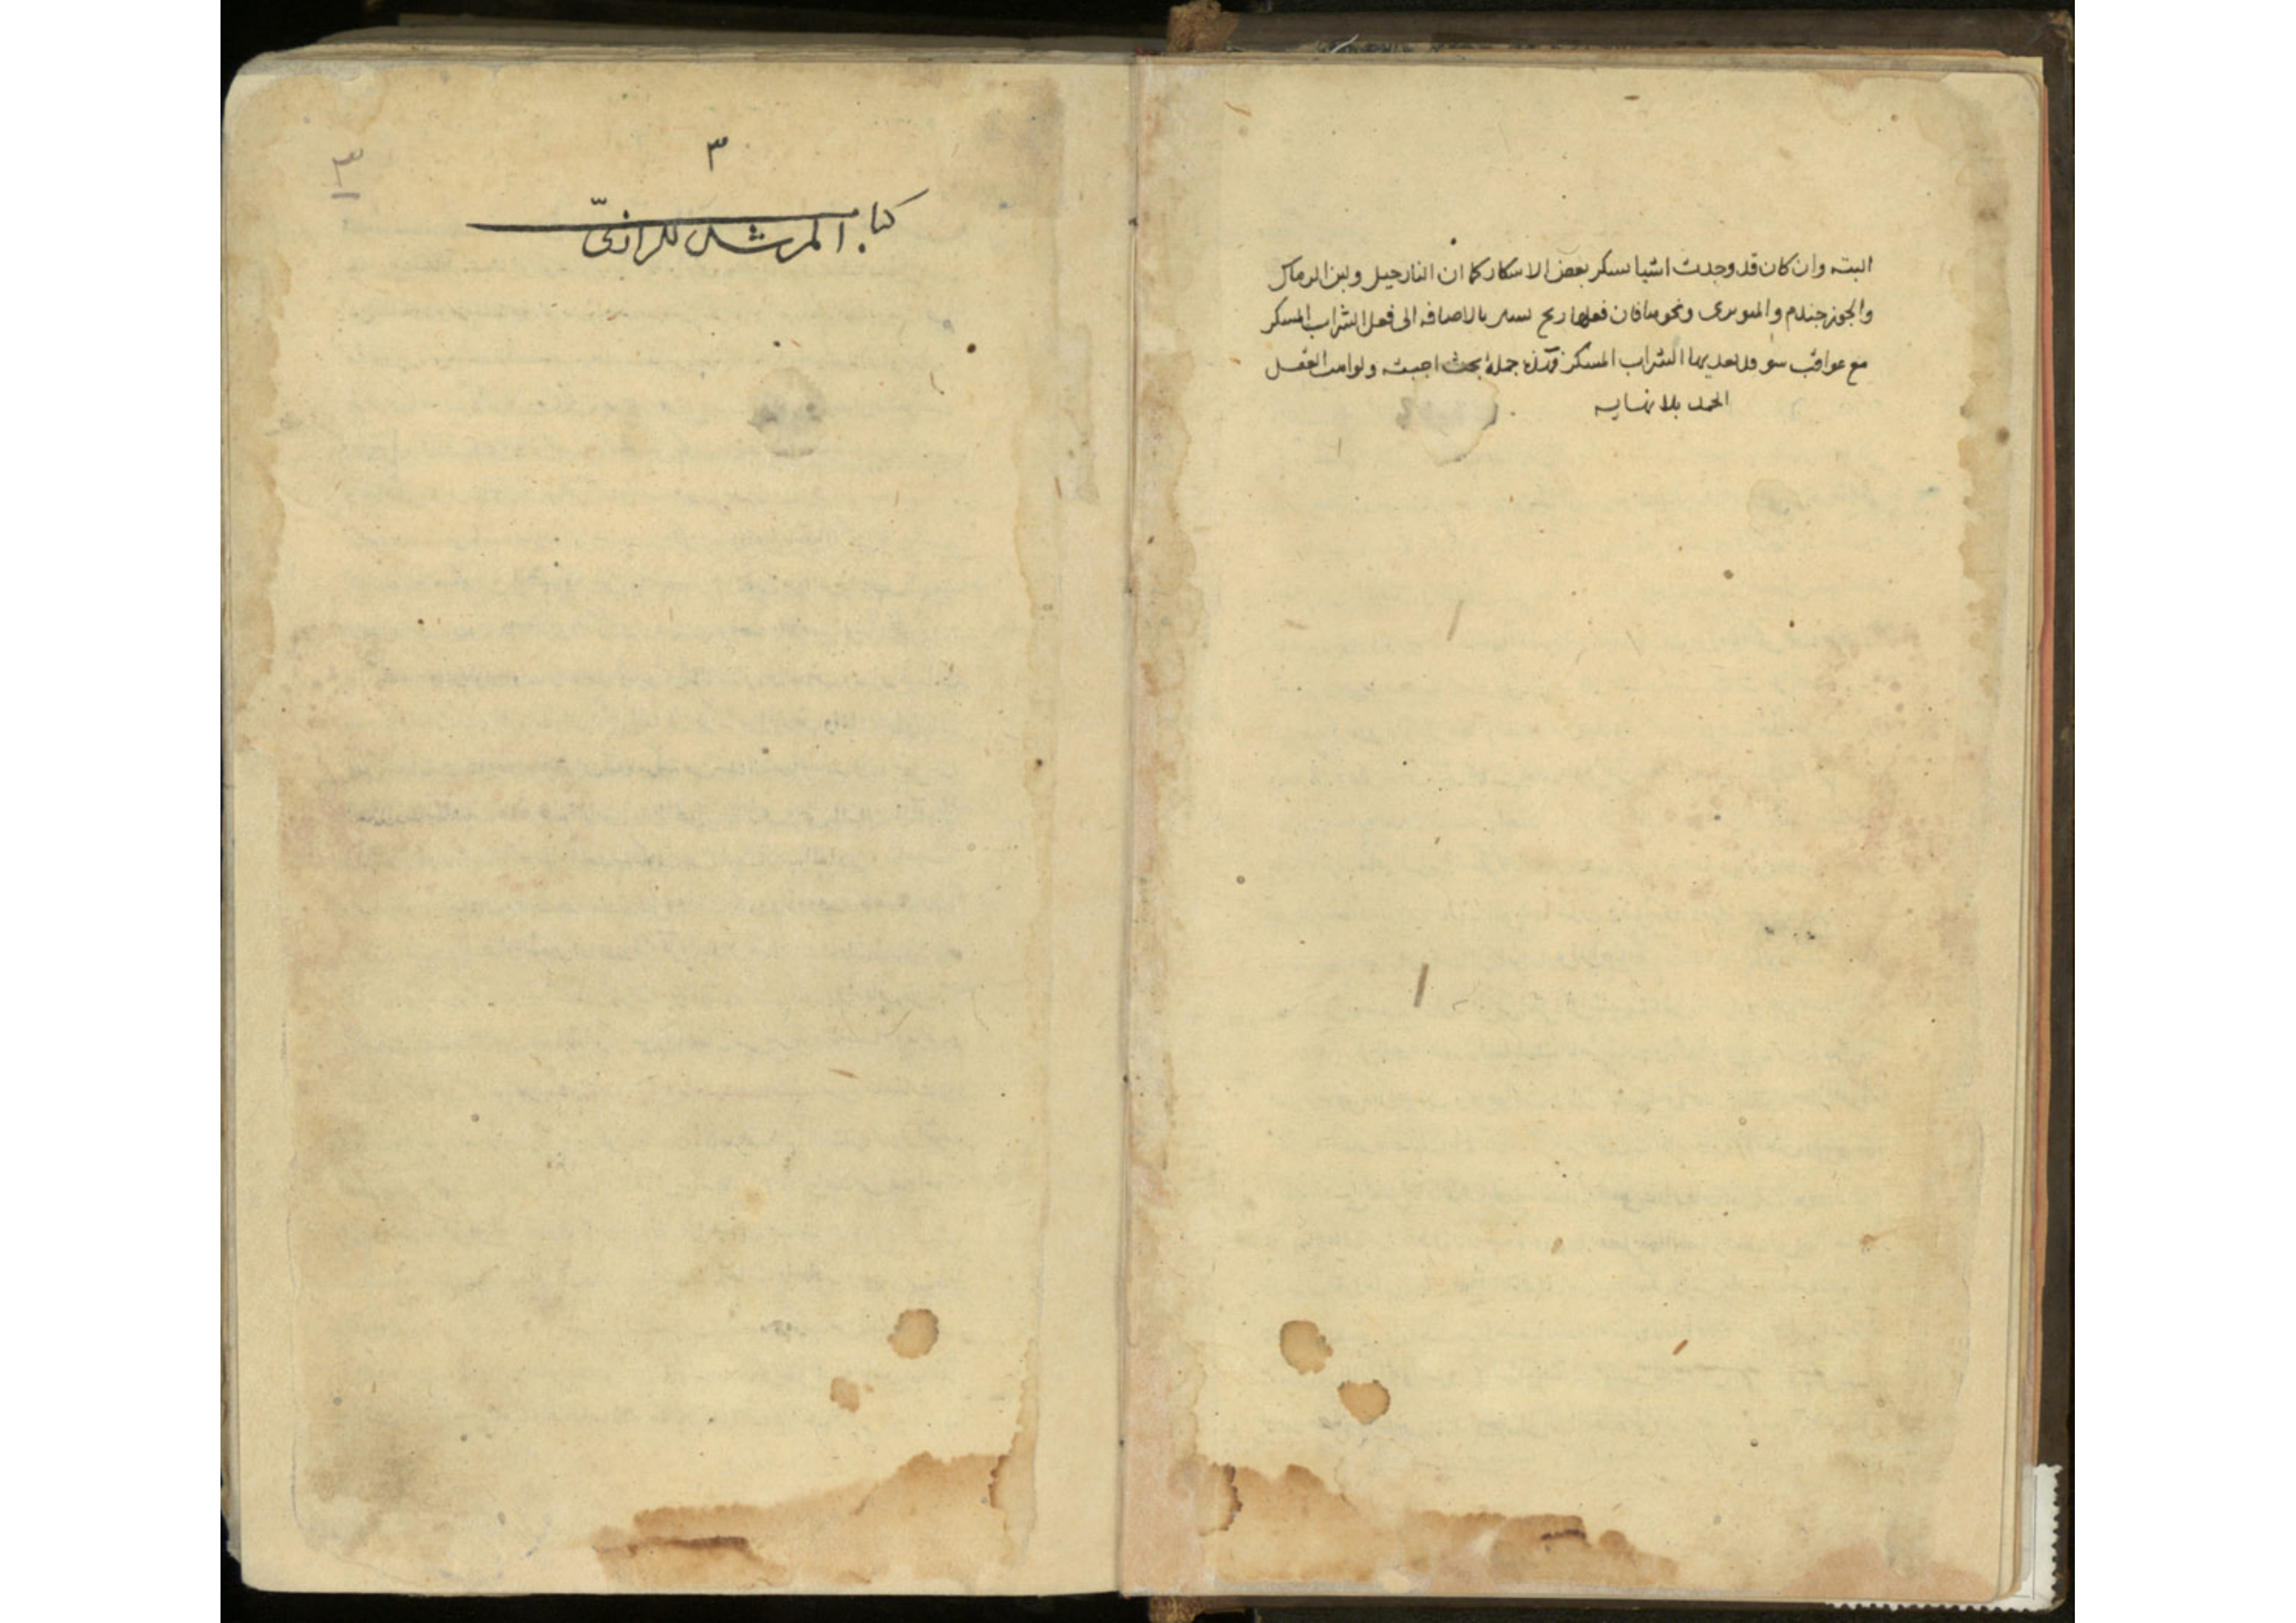 البته وان كان قد وجدت اشيا تسكر بعض الاسكار كما ان النارجيل ولبن الرماك
والجوز جندم ونحوها فان فعلها بالاضافه الى فعل الشراب المسكر
مع عواقب سو الشراب المسكر جملة بحث اجبته ولواهب العقل
الحمد بلا نهايه
٣
٣
كتاب المرشد للرازىّ